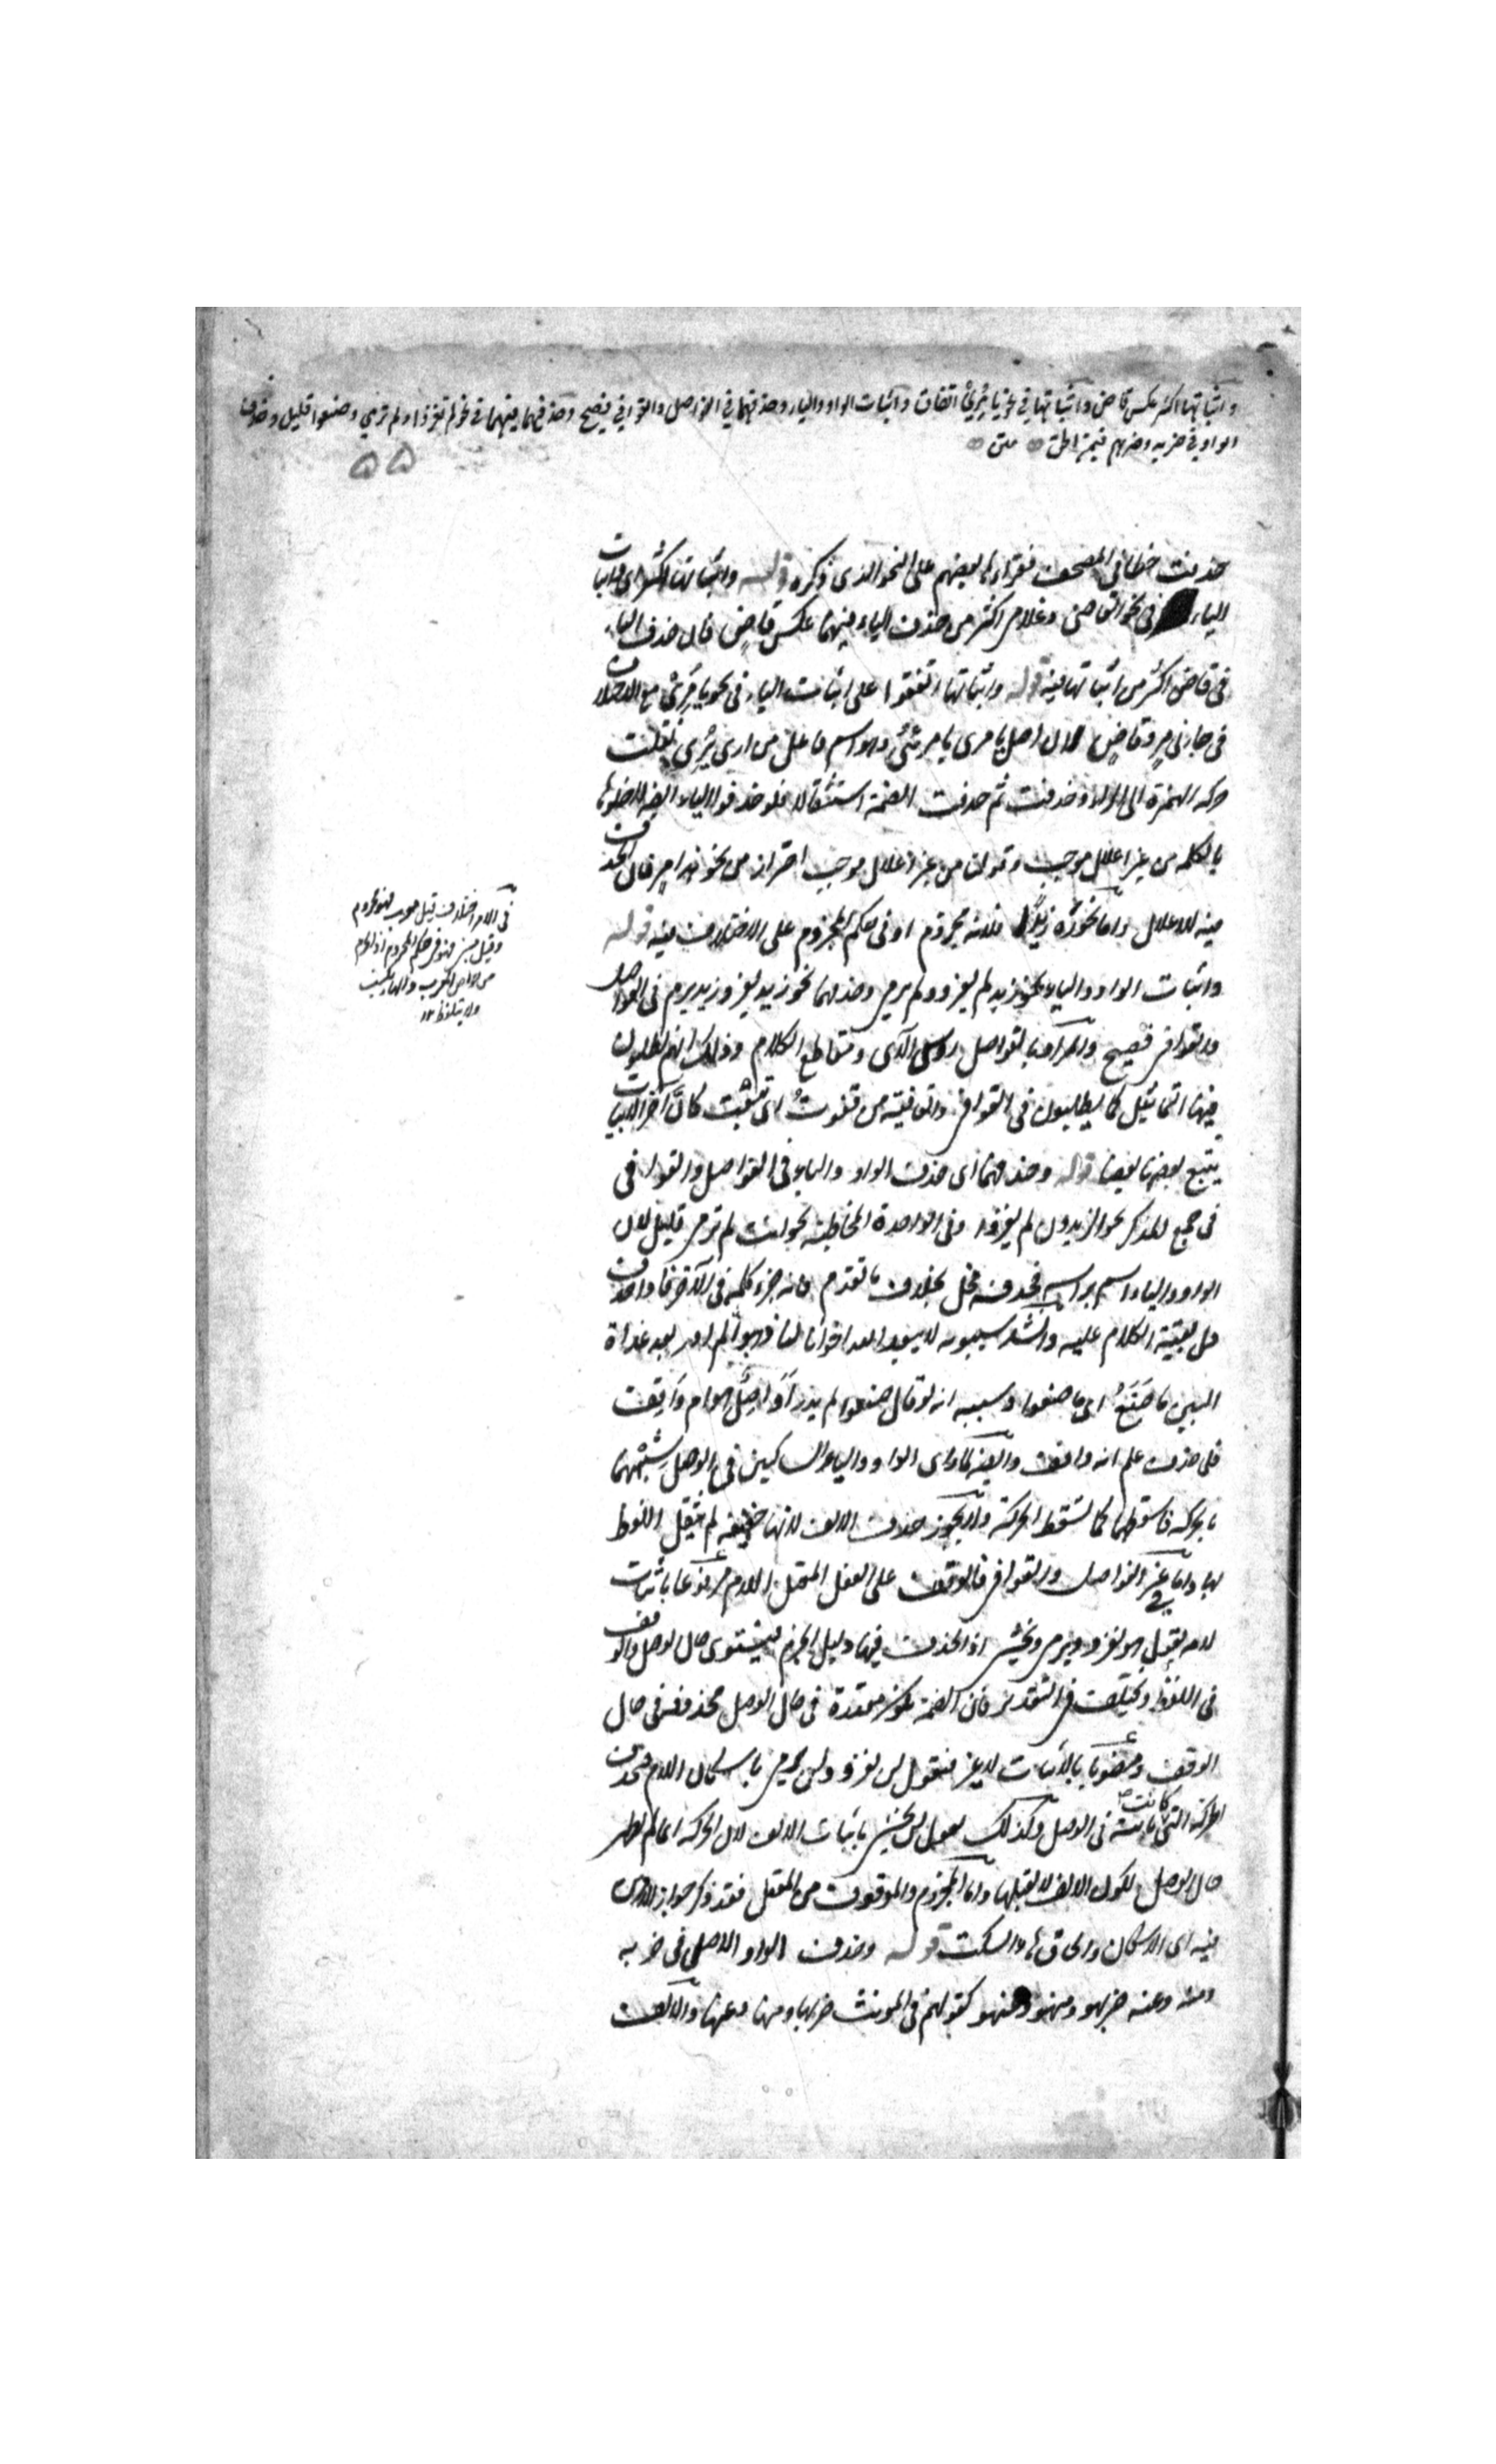 واثباتها اكثر عكس قاض واثباتها في نحو يا مُرِئ اتفاق واثبات الواو والياء وحذفهما في الفواصل والقوافي فصيح وحذفهما فيهما في نحو لم تغزوا ولم ترمي وصنعوا قليل وحذف
الواو في ضربه وضربهم فيمن الحق متن
٥٥
حذفت خطا في المصحف فقراءة بعضهم على النحو الذي ذكره قوله واثباتها اكثر اى واثبات
الياء في نحو القاضى وغلامى اكثر من حذف الياء فيهما عكس قاضٍ فان حذف الياء
في قاض اكثر من اثباتها فيه قوله واثباتها اتفقوا على اثبات الياء في نحو يا مُرِئ مع الاختلاف
في جاءنى مرٍ وقاضٍ لان اصل يا مرى يا مرئى وهو اسم فاعل من ارى يُرى نقلت
حركة الهمزة الى الراء وحذفت ثم حذفت الضمة استثقالا فلو حذفوا الياء ايضا لاخلوا
بالكلمة من غير اعلال موجب وقولنا من غير اعلال موجب احتراز من نحو مرٍ فان الحذف
فيه للاعلال واما نحو رَهْ زيدًا فلانه مجزوم او في حكم المجزوم على الاختلاف فيه قوله
واثبات الواو والياء نحو زيد لم يغزو ولم يرمى وحذفهما نحو زيد يغز وزيد يرم في الفواصل
والقوافى فصيح والمراد بالفواصل رؤس الآى ومقاطع الكلام وذلك انهم يطلبون
فيها التماثل كما يطلبون في القوافى والقافية من قفوتُ اى تتبعت كأنّ آخر الابيات
يتبع بعضها بعضا قوله وحذفهما اى حذف الواو والياء في الفواصل والقوافى
في جمع المذكر نحو الزيدون لم يغزوا وفى الواحدة المخاطبة نحو انت لم ترمى قليل لان
الواو والياء اسم برأسه فحذفه مخل بخلاف ما تقدم فانه جزء كلمة في الآخر فاذا حذف
دل بقية الكلام عليه وانشد سيبويه لا يبعد الله اخوانا لنا ذهبوا لم ادر بعد غداة
البين ما صَنَعُ اى ما صنعوا وسببه انه لو قال صنعوا لم يدر أواصلٌ هو ام واقف
فلما حذف علم انه واقف وايضا لما رأى الواو والياء ساكنين في الوصل شبههما
بالحركة فاسقطهما كما تسقط الحركة ولا يجوز حذف الالف لانها خفيفة لم يثقل اللفظ
بها واما في غير الفواصل والقوافى فالوقف على الفعل المعتل اللام مرفوعا باثبات
لامه يقول هو يغزو ويرمى ويخشى اذ الحذف فيها دليل الجزم فيستوى حال الوصل والوقف
في اللفظ ويختلف في التقدير فان الضمة تكون مقدرة في حال الوصل محذوفة في حال
الوقف ومنصوبا بالاثبات لا غير فنقول لن يغزو ولن يرمى باسكان اللام وحذف
الحركة التى كانت ثابتة في الوصل وكذلك تقول لن يخشى باثبات الالف لان الحركة انما لم تظهر
حال الوصل لكون الالف لا يقبلها واما المجزوم والموقوف من المعتل فقد ذكر جواز الامرين
فيه اى الاسكان والحاق هاء السكت قوله وحذف الواو الاصلى في ضربه
ومنه وعنه ضربهو ومنهو وعنهو كقولهم في المؤنث ضربها ومنها وعنها والالف
في الامر اختلاف قيل معرب فهو مجزوم
وقيل مبنى فهو في حكم المجزوم اذ الجزم
من خواص المعرب والهاء يكتب
ولا يتلفظ ١٢